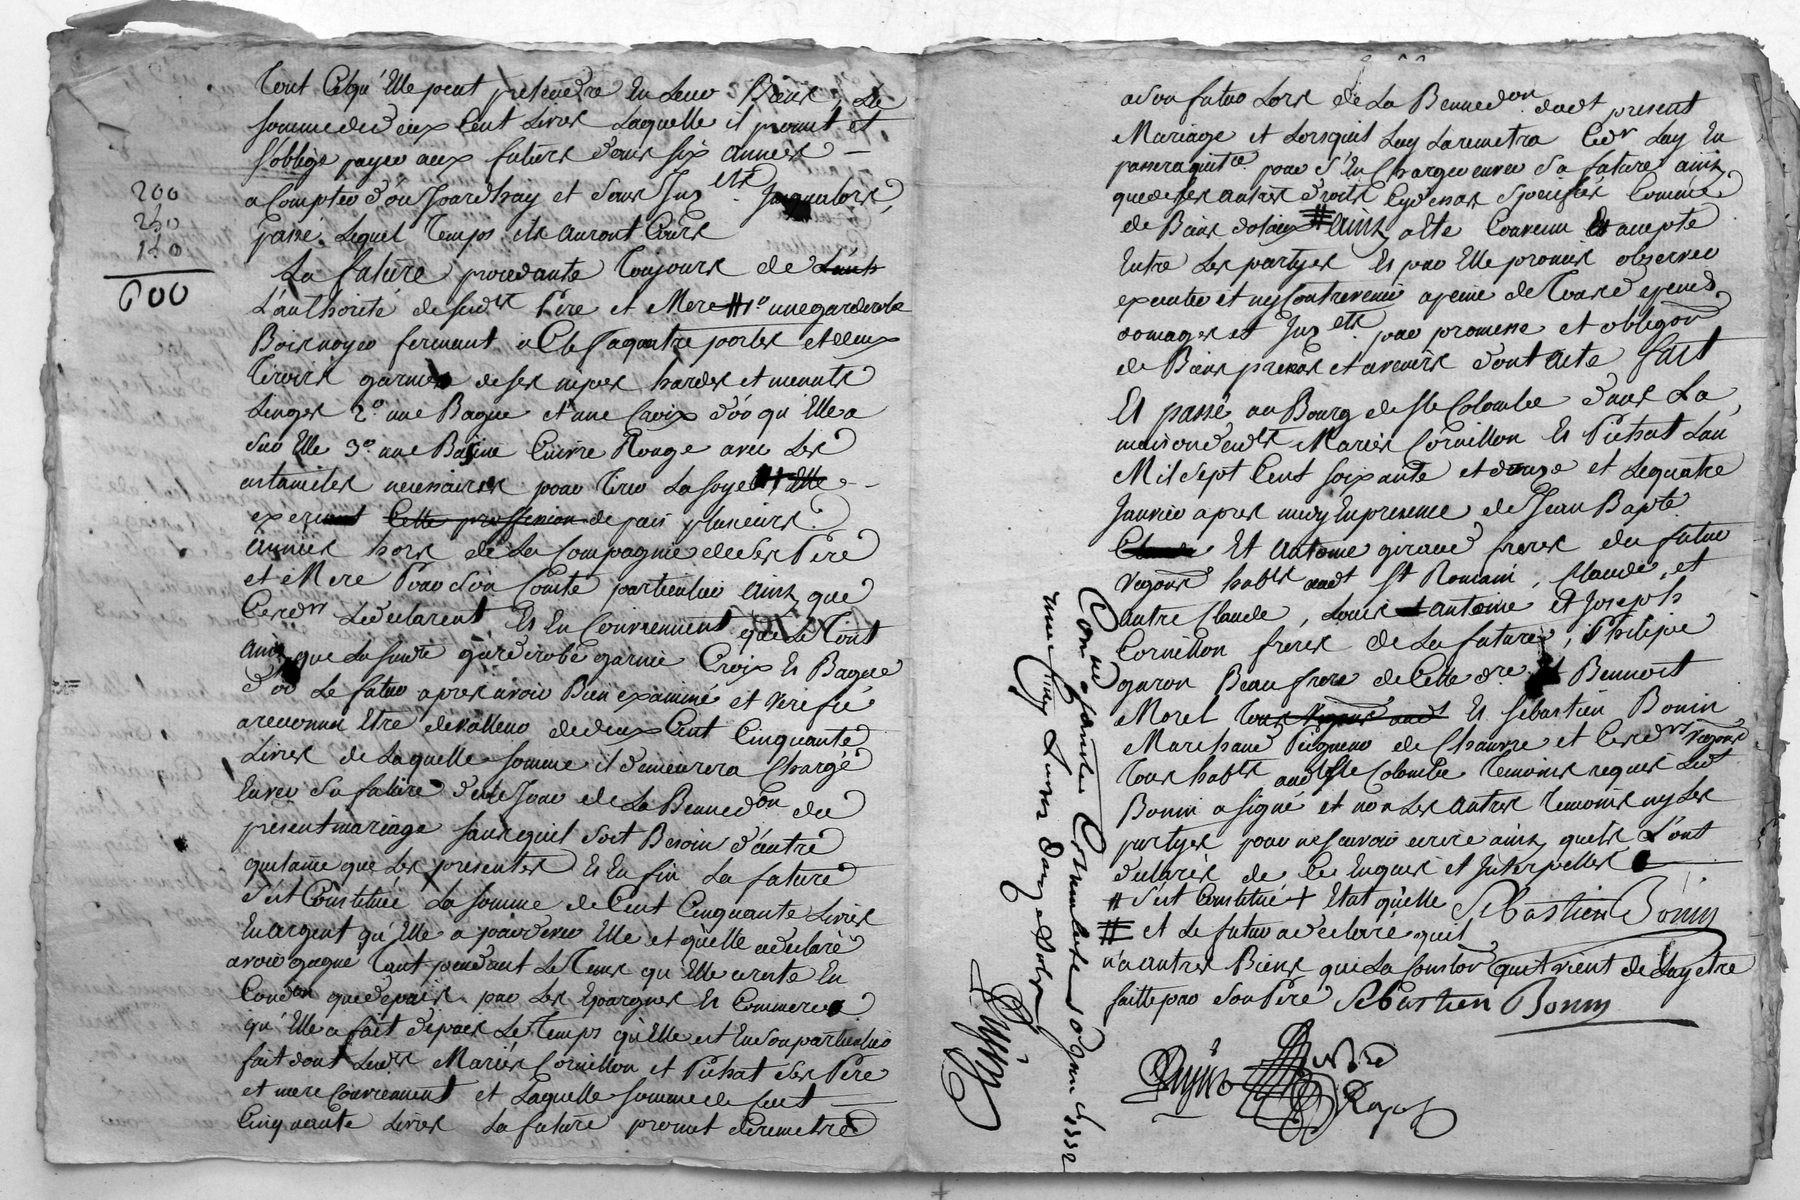 200
250
150
600
Tout Cequ'Elle peut pretendre En Leur Biens, La
somme de deux Cent Livres Laquelle il promet et
s'oblige payer aux futurs dans six années
a Compter d'ou Jourdhuy et sans Jusques Lors,
passé Lequel Temps ils auront Cours
La future procedante Toujours de
L'authorité de sesd. Pere et Mere # 1º une garderobe
Bois noyer fermant a Clef a quatre portes et deux
Tiroirs garnie de ses nipes hardes et menuts
Linges 2º une Bague et une Croix d'or qu'Elle a
sur Elle 3º une Basine Cuivre Rouge avec Les
ustanciles necessaires pour Tirer La soye
exercant Cette proffession depuis plusieurs
années hors de La Compagnie de ses Pere
et Mere Pour son Conte particulier Ainsy que
Cesdrs Ledeclarent Et En Conviennent que Le Tout
Ainsy que La susdte garderobe garnie Croix Et Bague
d'or Le futur apres avoir Bien examiné et verifié
a reconnu Etre de valleur de deux Cent Cinquante
Livres de Laquelle somme il demeurera Chargé
Envers sa future des le Jour de La Benned.on du
present mariage sans quil soit Besoin d'autre
quitance que Les presentes Et Enfin La future
s'est Constituée La somme de Cent Cinquante Livres
En argent qu'Elle a pardevers Elle et qu'elle a declaré
avoir gagné Tant pendant Le Tems qu'Elle a resté En
Condon que depuis par Ses Epargnes Et Commerce
qu'Elle a fait depuis Le Temps qu'Elle est En son particulier
fait dont Lesd. Mariés Cornillon et Pichat ses Pere
et mere Conviennent et Laquelle somme de Cent
Cinquante Livres La future promet de remettre
a son futur Lors de La Benned.on dudt present
Mariage et Lorsquil Luy La remetra Cedr Luy En
passera quitce pour s'En Charger envers sa future ainsy
que de ses autres droits Cydessus Specifiés Comme
de Biens dotaux # Ainsy a Eté Convenu Et accepté
Entre Les partyes Et par Elle promis observer
executer et ny Contrevenir a peine de Tous depens
domages et par promesse et obligon
de Biens presens et avenirs dont acte fait
Et passé au Bourg de Ste Colombe dans La
maison desdts Mariés Cornillon Et Pichat L'an
Mil sept Cent soixante et douze et Le quatre
Janvier apres midy En presence de Jean Bapte
Et Antoine giraud freres du futur
vignrs habts audt St Romain, Claude, et
autre Claude, Louis Antoine Et Joseph
Cornillon freres de La future, Philipe
garon Beaufrere de Cette dre Et Bennoit
Morel Tous vignrs audt Et Sebastien Bonin
Marchand Peigneur de Chanvre et Cesdrs vignrs
Tous habts audt Ste Colombe Temoins requis Ledt
Bonin a signé et non Les autres Temoins ny Les
partyes pour ne scavoir ecrire ainsy qu'ils L'ont
declarés de Ce Enquis et Interpellés
# s'est Constitué + Etat qu'elle Sebastien Bonin
# et Le futur a declaré quil
n'a autres Biens que La Conston qui vient de Luy etre
faitte par son Pere Sebastien Bonin